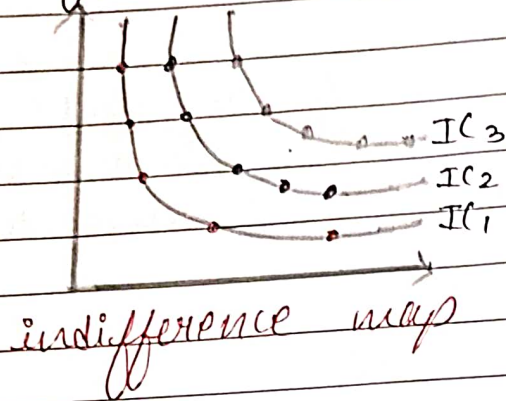 IC3
IC2
IC1
indifference map